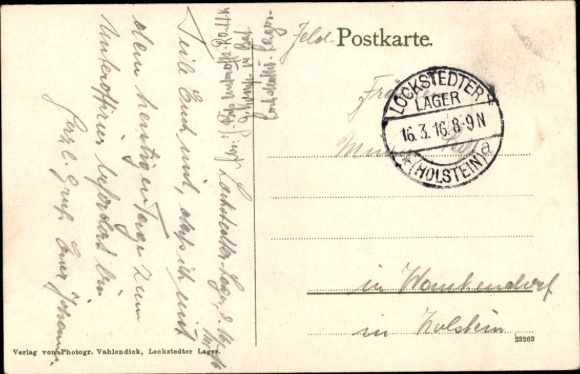 Feldp. Postkarte.
LOCKSTEDTER
LAGER
16.3.16.8-9N
* (HOLSTEIN) a
in Wankendorf
in Holstein
Lockstedter Lager, d.
Teile Euch mit, daß ich mit
dem heutigen Tage zum
Unteroffizier befördert bin
Herzl. Gruß Euer Johannes
Lockstedter-Lager.
Verlag von Photogr. Vahlendick, Lockstedter Lager.
23263